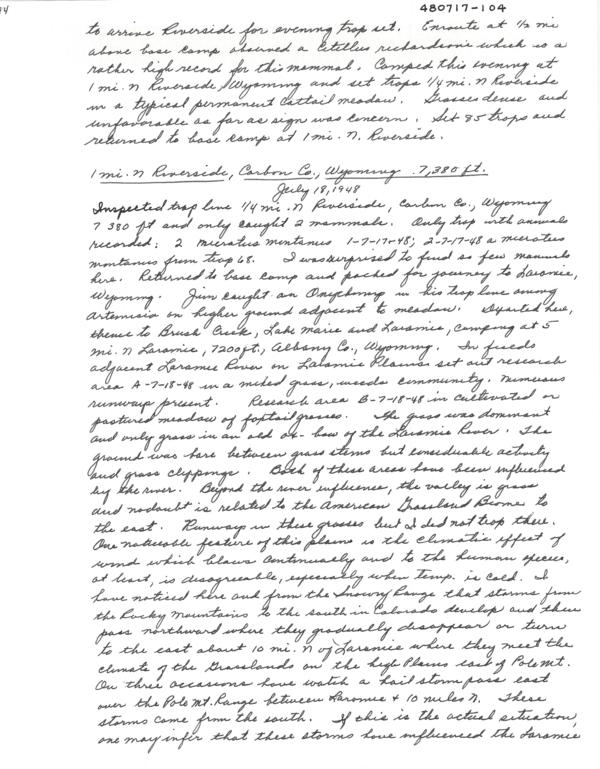 480717-104
to arrive Riverside for evening trap set. Enroute at 1/2 mi
above base camp observed a Citellus richardsonii which is a
rather high record for this mammal. Camped this evening at
1 mi. N Riverside, Wyoming and set traps 1/4 mi. N Riverside
in a typical permanent Cattail meadow. Grasses dense and
unfavorable as far as sign was concern. Set 85 traps and
returned to base camp at 1 mi. N. Riverside.
1 mi. N Riverside, Carbon Co., Wyoming 7,380 ft.
July 18, 1948
Inspected trap line 1/4 mi. N Riverside, Carbon Co., Wyoming
7 380 ft and only caught 2 mammals. Only trap with animals
recorded: 2 Microtus montanus 1-7-17-48; 2-7-17-48 a Microtus
montanus from trap 68. I was surprised to find so few mammals
here. Returned to base camp and packed for journey to Laramie,
Wyoming. Jim caught an Onychomys in his trap line among
Artemisia on higher ground adjacent to meadow. Departed here,
thence to Brush Creek, Lake Marie and Laramie, camping at 5
mi. N Laramie, 7200 ft., Albany Co., Wyoming. In fields
adjacent Laramie River on Laramie Plains set out research
area A-7-18-48 in a mixed grass, weeds community. Numerous
runways present. Research area B-7-18-48 in cultivated or
pastured meadow of foxtail grasses. The grass was dominant
and only grass in an old ox-bow of the Laramie River. The
ground was bare between grass stems but considerable activity
and grass clippings. Both of these areas have been influenced
by the river. Beyond the river influence, the valley is grass
and nodoubt is related to the American Grassland Biome to
the east. Runways in these grasses but I did not trap there.
One noticeable feature of this plains is the climatic effect of
wind which blows continually and to the human species,
at least, is disagreeable, especially when temp. is cold. I
have noticed here and from the Snowy Range that storms from
the Rocky Mountains to the south in Colorado develop and then
pass northward where they gradually disappear or turn
to the east about 10 mi. N of Laramie where they meet the
climate of the Grasslands on the high Plains east of Pole Mt.
On three occasions have watch a hail storm pass east
over the Pole Mt. Range between Laramie + 10 miles N. These
storms come from the south. If this is the actual situation,
one may infer that these storms have influenced the Laramie